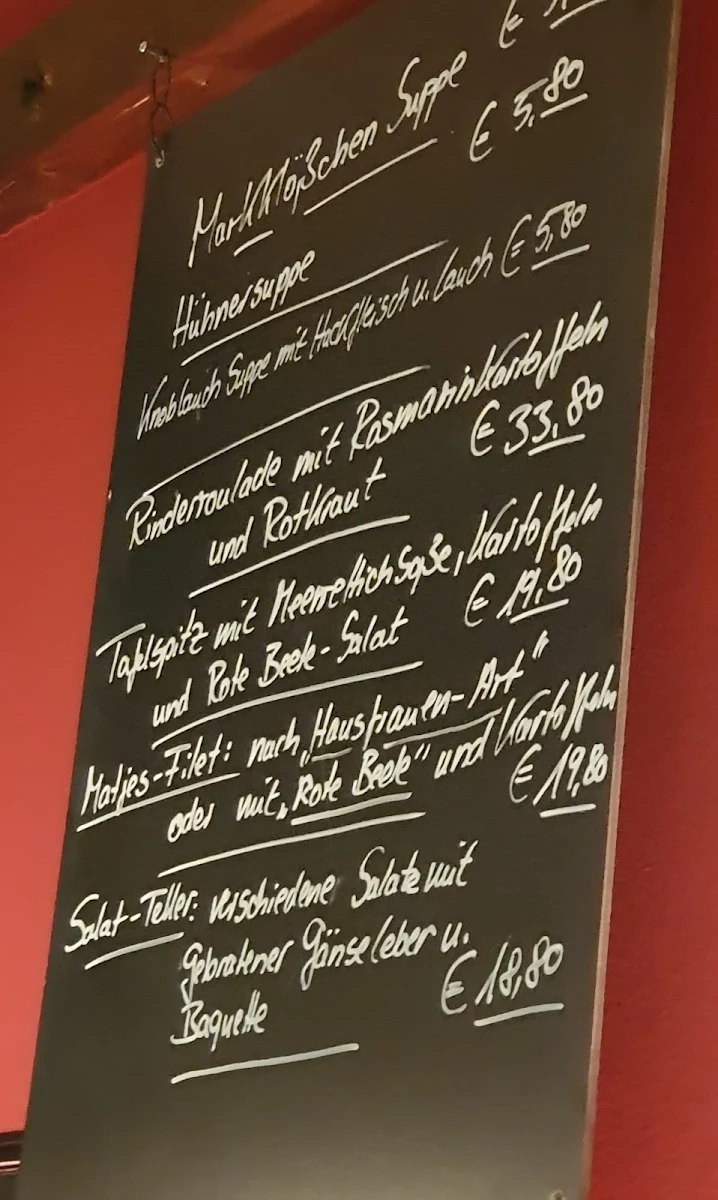 €
Markklößchen Suppe
€ 5,80
Hühnersuppe
Knoblauch Suppe mit Hackfleisch u. Lauch € 5,80
Rinderroulade mit Rosmarinkartoffeln
und Rotkraut € 33,80
Tafelspitz mit Meerrettichsoße, Kartoffeln
und Rote Beete-Salat € 19,80
Matjes-Filet: nach „Hausfrauen-Art"
oder mit „Rote Beete" und Kartoffeln
€ 19,80
Salat-Teller: verschiedene Salate mit
gebratener Gänseleber u.
Baquette € 18,80